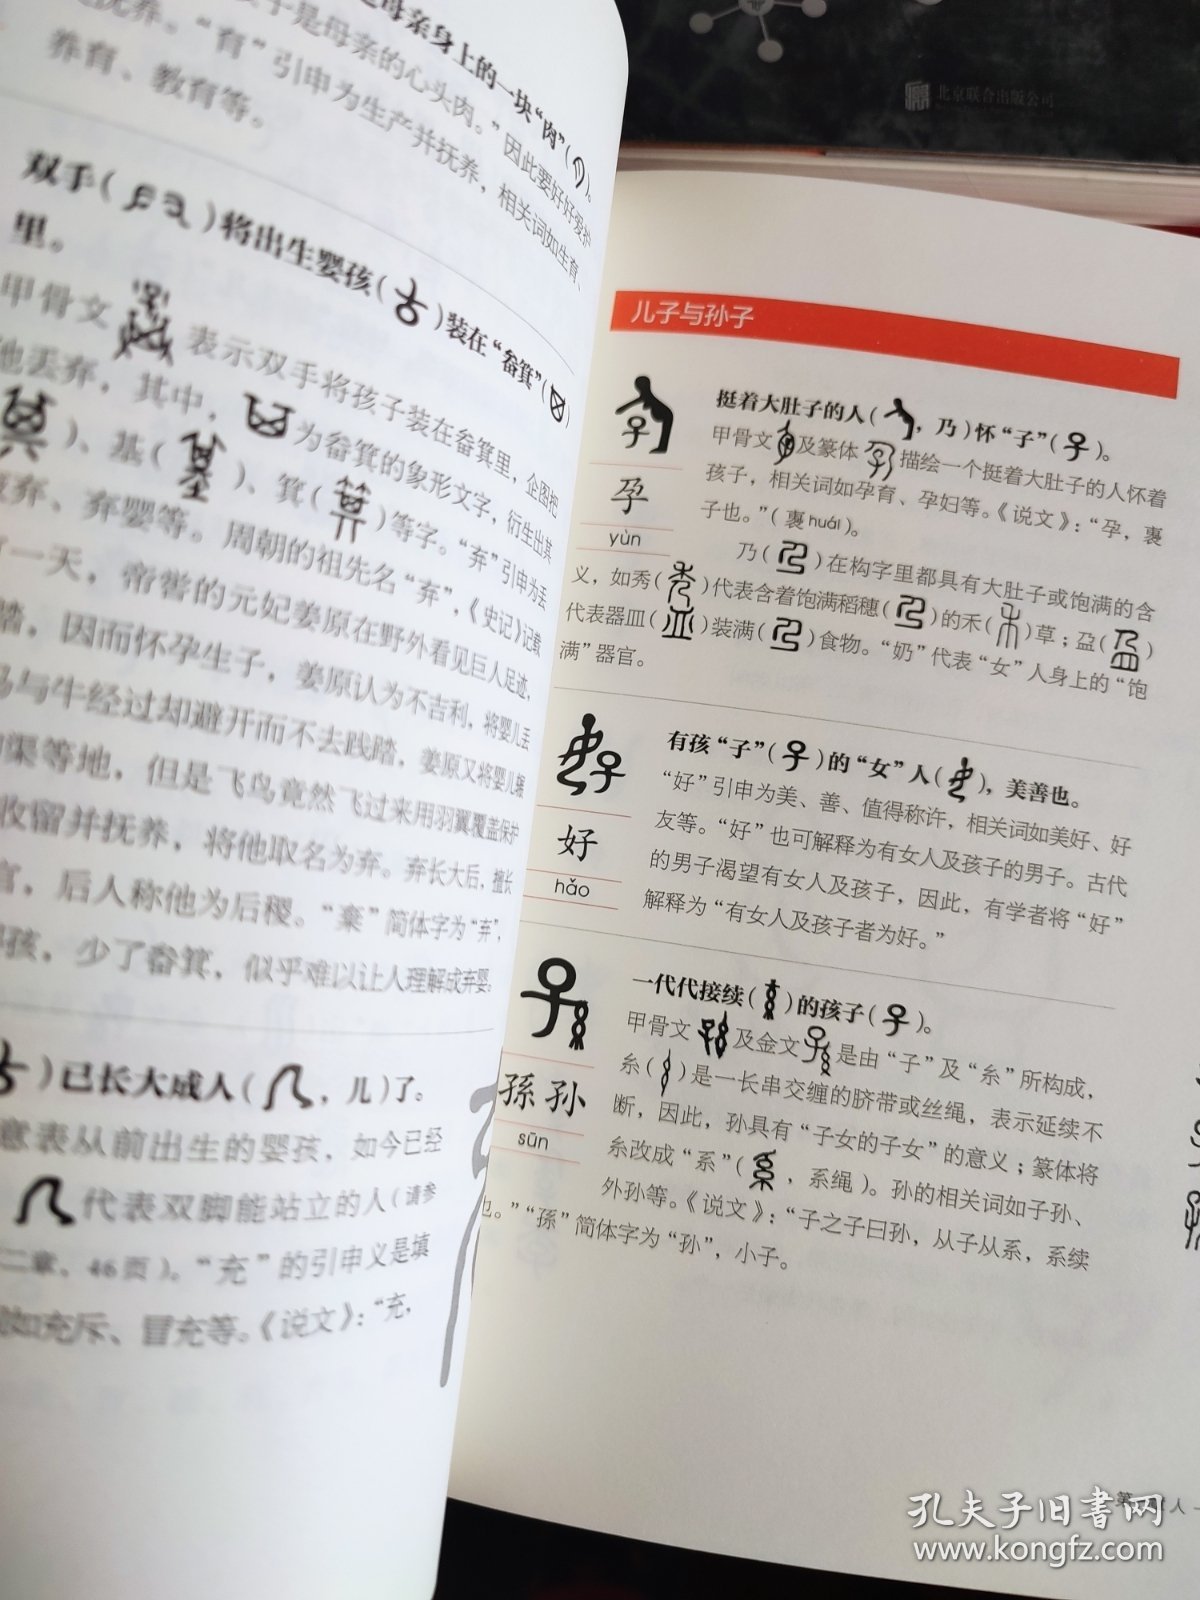 是母亲身上的一块“肉”( )。
孩子是母亲的心头肉。”因此要好好爱护
抚养。“育”引申为生产并抚养，相关词如生育、
养育、教育等。
双手( )将出生婴孩( )装在“畚箕”( )
里。
甲骨文 表示双手将孩子装在畚箕里，企图把
他丢弃，其中， 为畚箕的象形文字，衍生出其
( )、基( )、箕( )等字。“弃”引申为丢
弃、弃婴等。周朝的祖先名“弃”，《史记》记载
一天，帝喾的元妃姜原在野外看见巨人足迹，
踏，因而怀孕生子，姜原认为不吉利，将婴儿丢
马与牛经过却避开而不去践踏，姜原又将婴儿
渠等地，但是飞鸟竟然飞过来用羽翼覆盖保护
收留并抚养，将他取名为弃。弃长大后，擅长
官，后人称他为后稷。“棄”简体字为“弃”，
孩，少了畚箕，似乎难以让人理解成弃婴。
( )已长大成人( ，儿)了。
意表从前出生的婴孩，如今已经
代表双脚能站立的人(请参
二章，46页)。“充”的引申义是填
如充斥、冒充等。《说文》：“充，
北京联合出版公司
儿子与孙子
孕
yùn
挺着大肚子的人( ，乃)怀“子”( )。
甲骨文 及篆体 描绘一个挺着大肚子的人怀着
孩子，相关词如孕育、孕妇等。《说文》：“孕，裹
子也。”(裹huái)。
乃( )在构字里都具有大肚子或饱满的含
义，如秀( )代表含着饱满稻穗( )的禾( )草；盈( )
代表器皿( )装满( )食物。“奶”代表“女”人身上的“饱
满”器官。
好
hǎo
有孩“子”( )的“女”人( )，美善也。
“好”引申为美、善、值得称许，相关词如美好、好
友等。“好”也可解释为有女人及孩子的男子。古代
的男子渴望有女人及孩子，因此，有学者将“好”
解释为“有女人及孩子者为好。”
孫 孙
sūn
一代代接续( )的孩子( )。
甲骨文 及金文 是由“子”及“糸”所构成，
糸( )是一长串交缠的脐带或丝绳，表示延续不
断，因此，孙具有“子女的子女”的意义；篆体将
糸改成“系”( ，系绳)。孙的相关词如子孙、
外孙等。《说文》：“子之子曰孙，从子从系，系续
也。”“孫”简体字为“孙”，小子。
孔夫子旧书网
www.kongfz.com